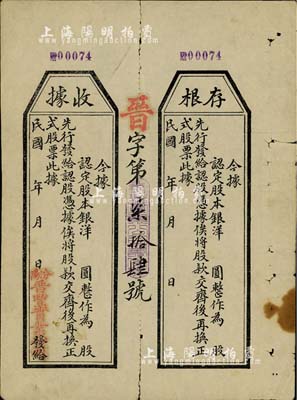 上海陽明拍賣
№00074
№00074
存根
今據
認定股本銀洋 圓整作為 股
先行發給認股憑據俟將股款交齊後再換正
式股票此據
民國 年 月 日
晉字第柒拾肆號
收據
今據
認定股本銀洋 圓整作為 股
先行發給認股憑據俟將股款交齊後再換正
式股票此據
民國 年 月 日
發給
上海陽明拍賣